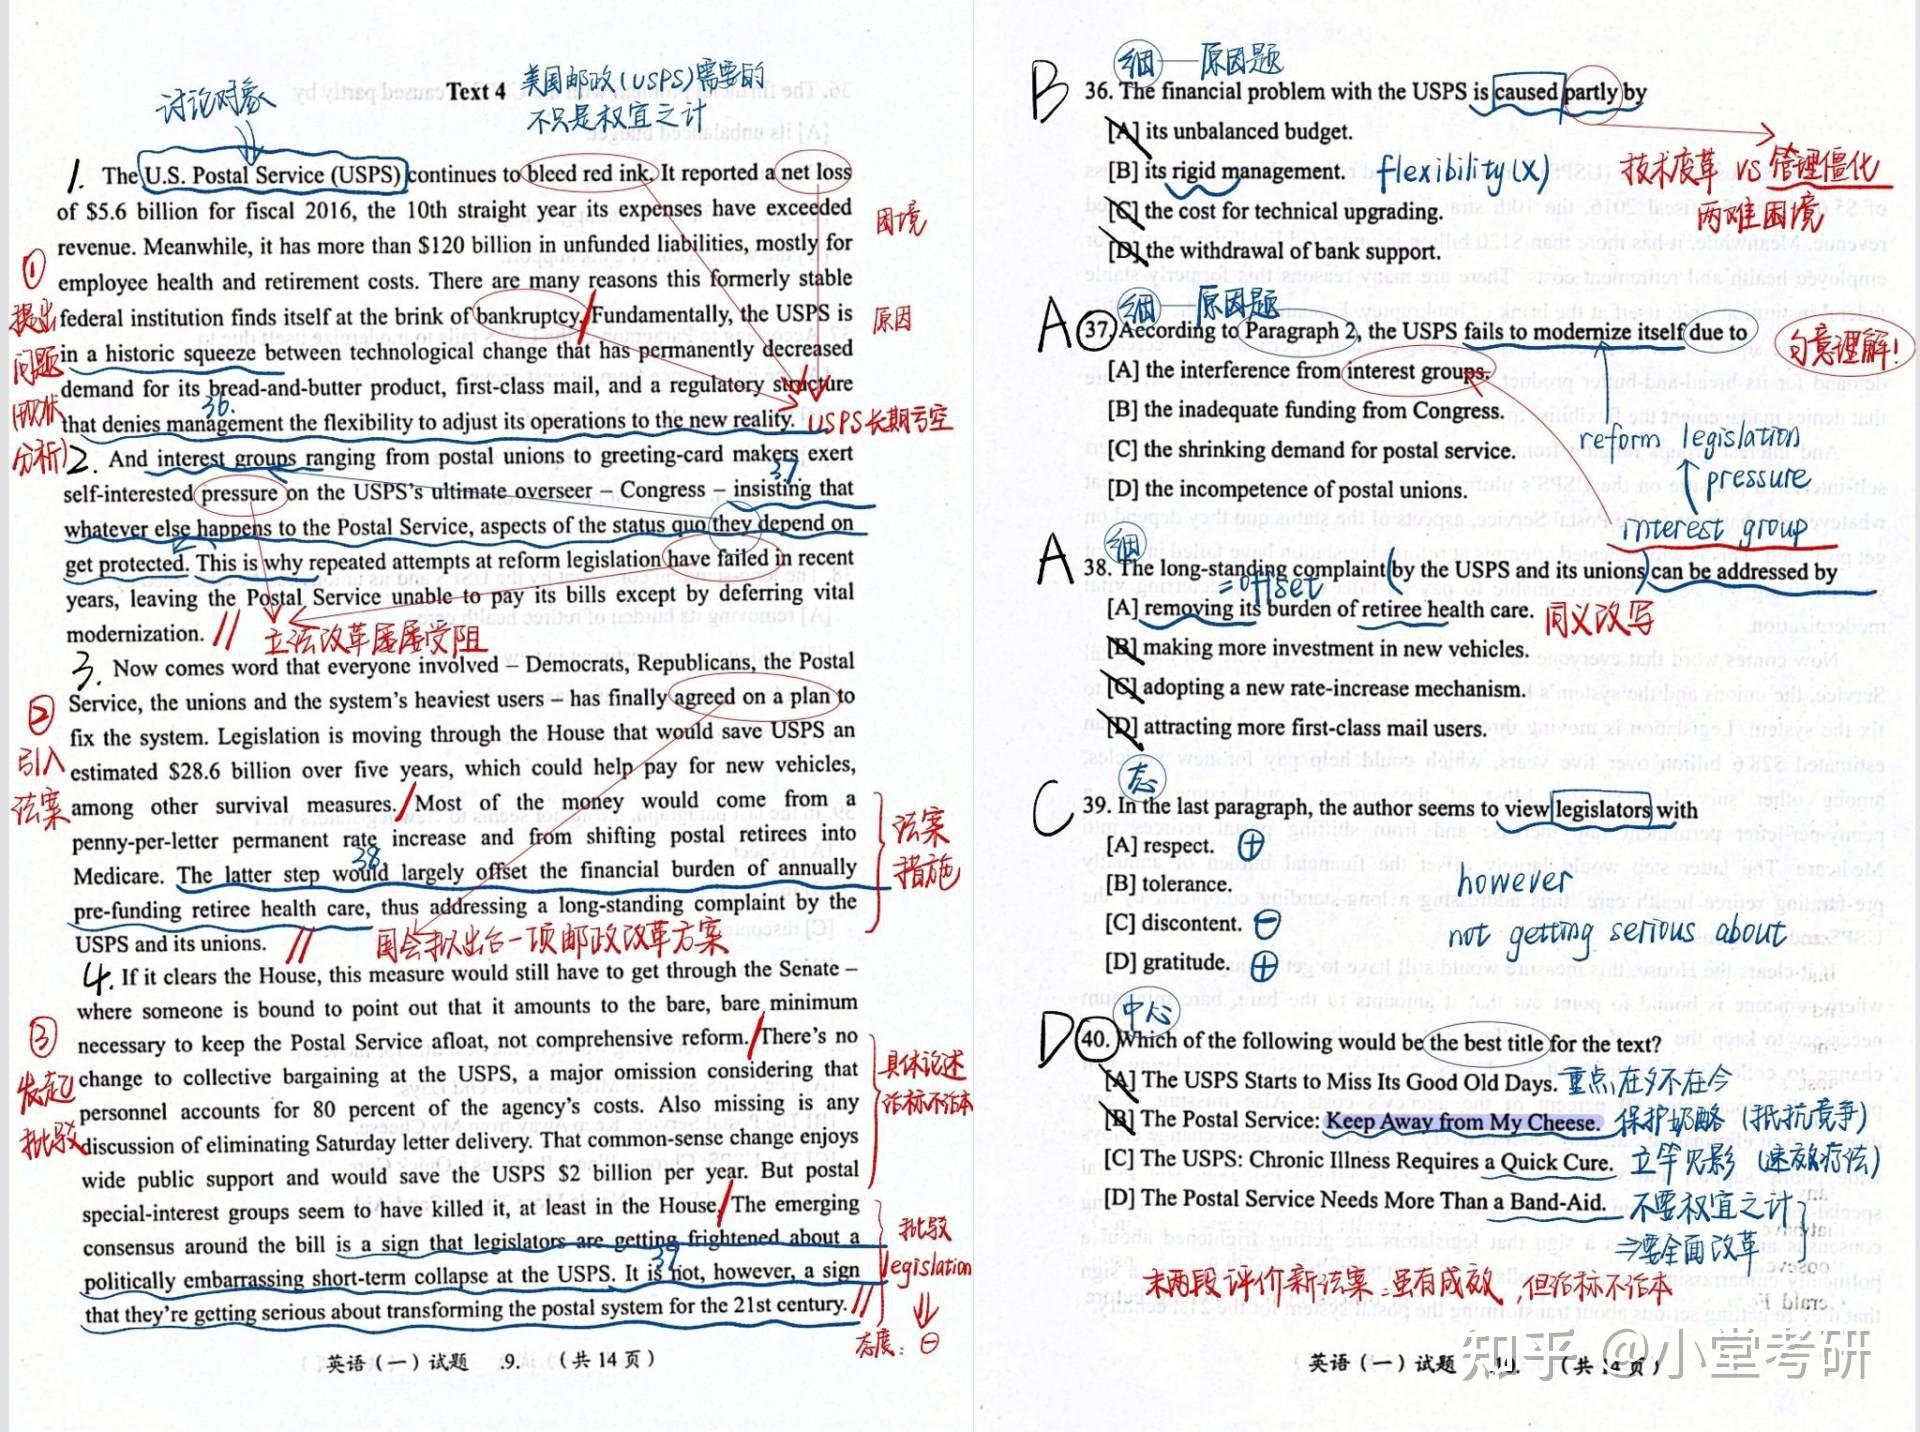 讨论对象
Text 4
美国邮政(USPS)需要的
不只是权宜之计
1. The U.S. Postal Service (USPS) continues to bleed red ink. It reported a net loss
of $5.6 billion for fiscal 2016, the 10th straight year its expenses have exceeded
困境
revenue. Meanwhile, it has more than $120 billion in unfunded liabilities, mostly for
employee health and retirement costs. There are many reasons this formerly stable
federal institution finds itself at the brink of bankruptcy. Fundamentally, the USPS is
原因
in a historic squeeze between technological change that has permanently decreased
demand for its bread-and-butter product, first-class mail, and a regulatory structure
36.
that denies management the flexibility to adjust its operations to the new reality.
USPS长期亏空
① 提出
问题
(现状
分析)
2. And interest groups ranging from postal unions to greeting-card makers exert
37
self-interested pressure on the USPS's ultimate overseer – Congress – insisting that
whatever else happens to the Postal Service, aspects of the status quo they depend on
get protected. This is why repeated attempts at reform legislation have failed in recent
years, leaving the Postal Service unable to pay its bills except by deferring vital
modernization.
立法改革屡屡受阻
3. Now comes word that everyone involved – Democrats, Republicans, the Postal
Service, the unions and the system's heaviest users – has finally agreed on a plan to
fix the system. Legislation is moving through the House that would save USPS an
estimated $28.6 billion over five years, which could help pay for new vehicles,
among other survival measures. Most of the money would come from a
penny-per-letter permanent rate increase and from shifting postal retirees into
38
Medicare. The latter step would largely offset the financial burden of annually
pre-funding retiree health care, thus addressing a long-standing complaint by the
USPS and its unions.
国会拟出台一项邮政改革方案
② 引入
法案
法案
措施
4. If it clears the House, this measure would still have to get through the Senate –
where someone is bound to point out that it amounts to the bare, bare minimum
necessary to keep the Postal Service afloat, not comprehensive reform. There's no
change to collective bargaining at the USPS, a major omission considering that
personnel accounts for 80 percent of the agency's costs. Also missing is any
discussion of eliminating Saturday letter delivery. That common-sense change enjoys
wide public support and would save the USPS $2 billion per year. But postal
special-interest groups seem to have killed it, at least in the House. The emerging
consensus around the bill is a sign that legislators are getting frightened about a
39
politically embarrassing short-term collapse at the USPS. It is not, however, a sign
that they're getting serious about transforming the postal system for the 21st century.
③ 发起
批驳
具体论述
治标不治本
批驳
legislation
态度: ⊖
英语(一)试题 .9. (共14页)
细——原因题
B
36. The financial problem with the USPS is caused partly by
[A] its unbalanced budget.
[B] its rigid management. flexibility(X)
技术变革 VS 管理僵化
两难困境
[C] the cost for technical upgrading.
[D] the withdrawal of bank support.
细——原因题
A
37. According to Paragraph 2, the USPS fails to modernize itself due to
句意理解!
[A] the interference from interest groups.
[B] the inadequate funding from Congress.
[C] the shrinking demand for postal service.
[D] the incompetence of postal unions.
reform legislation
pressure
interest group
细
A
38. The long-standing complaint (by the USPS and its unions) can be addressed by
=offset
[A] removing its burden of retiree health care. 同义改写
[B] making more investment in new vehicles.
[C] adopting a new rate-increase mechanism.
[D] attracting more first-class mail users.
态
C
39. In the last paragraph, the author seems to view legislators with
[A] respect. ⊕
[B] tolerance.
[C] discontent. ⊖
[D] gratitude. ⊕
however
not getting serious about
中心
D
40. Which of the following would be the best title for the text?
[A] The USPS Starts to Miss Its Good Old Days. 重点在夕不在今
[B] The Postal Service: Keep Away from My Cheese. 保护奶酪(抵抗竞争)
[C] The USPS: Chronic Illness Requires a Quick Cure. 立竿见影(速效疗法)
[D] The Postal Service Needs More Than a Band-Aid. 不要权宜之计
⇒要全面改革
末两段评价新法案:虽有成效,但治标不治本
英语(一)试题 .10. (共14页)
知乎 @小堂考研